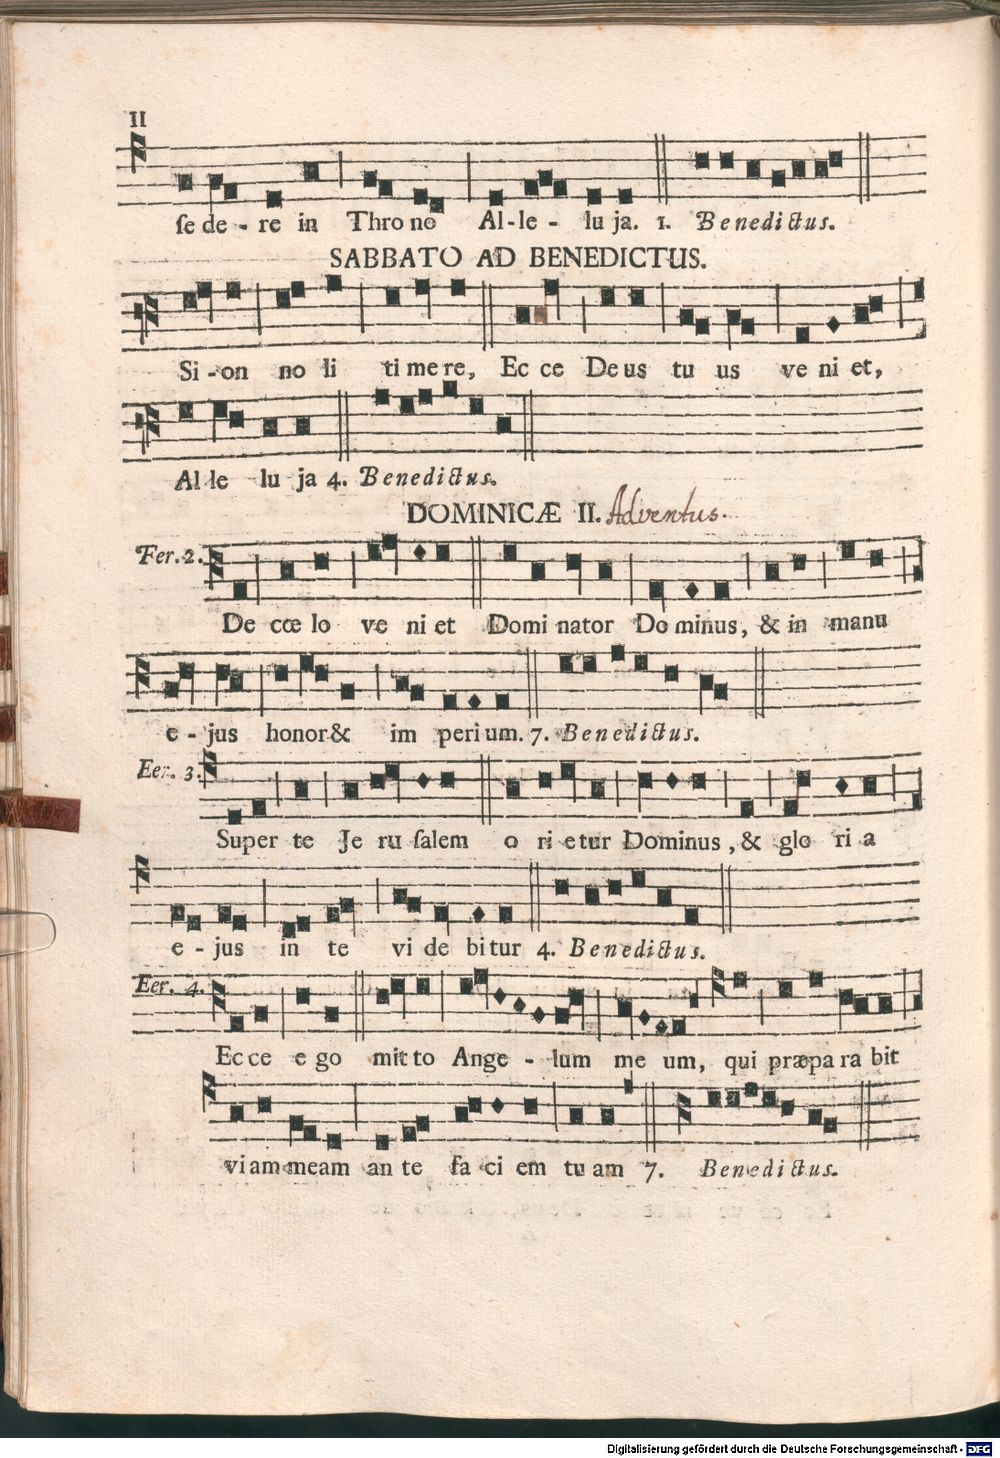 II
ſe de - re in Thro no Al - le - lu ja. 1. Benedictus.
SABBATO AD BENEDICTUS.
Si - on no li ti me re, Ec ce De us tu us ve ni et,
Al le lu ja 4. Benedictus.
DOMINICÆ II. Adventus.
Fer. 2.
De cœ lo ve ni et Domi nator Do minus, & in manu
e - jus honor & im peri um. 7. Benedictus.
Eer. 3.
Super te Je ru ſalem o ri e tur Dominus, & glo ri a
e - jus in te vi de bitur 4. Benedictus.
Eer. 4.
Ec ce e go mit to Ange - lum me um, qui præpa ra bit
viam meam an te fa ci em tu am 7. Benedictus.
Digitalisierung gefördert durch die Deutsche Forschungsgemeinschaft - DFG